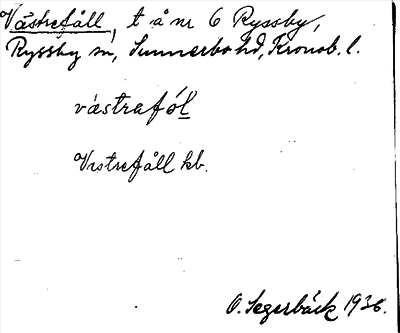 Västrefåll, t å nr 6 Ryssby,
Ryssby sn, Sunnerbo hd, Kronob. l.
västrafól
Vestrefåll kb.
O. Segerbäck 1936.